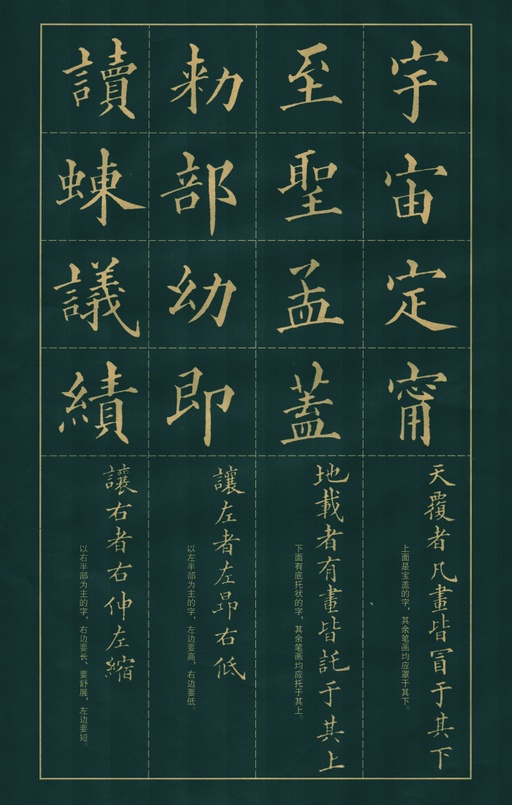 宇
宙
定
甯
天覆者凡畫皆冒于其下
上面是宝盖的字，其余笔画均应覆于其下。
至
聖
孟
蓋
地載者有畫皆託于其上
下面有底托状的字，其余笔画均应托于其上。
勑
部
幼
即
讓左者左昂右低
以左半部为主的字，左边要高，右边要低。
讀
蝀
議
績
讓右者右伸左縮
以右半部为主的字，右边要长、要舒展，左边要短。